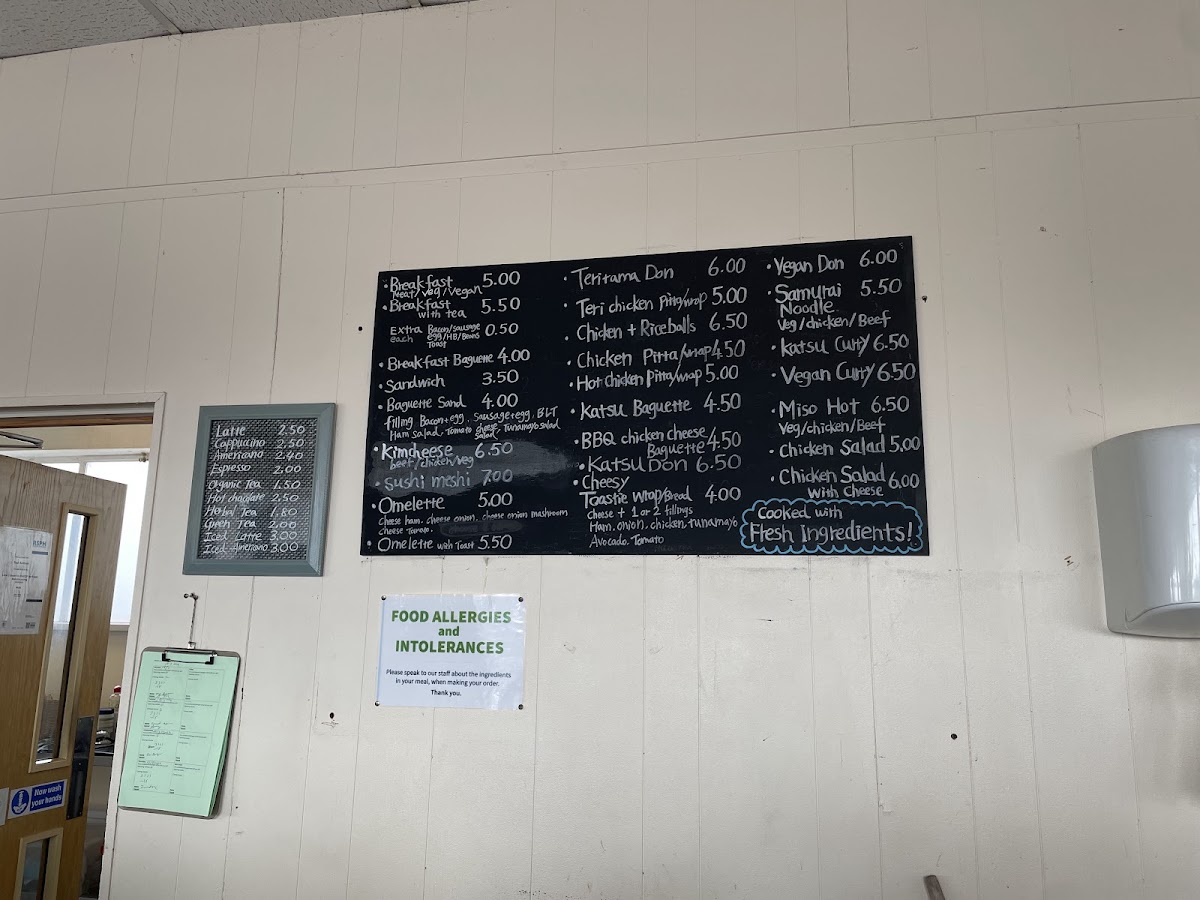 Latte 2.50
Cappuccino 2.50
Americano 2.40
Espresso 2.00
Organic Tea 1.50
Hot chocolate 2.50
Herbal Tea 1.80
Green Tea 2.00
Iced Latte 3.00
Iced Americano 3.00
• Breakfast 5.00
Meat/Veg/Vegan
• Breakfast 5.50
with tea
Extra Bacon/sausage 0.50
each egg/HB/Beans
Toast
• Breakfast Baguette 4.00
• Sandwich 3.50
• Baguette Sand 4.00
filling Bacon+egg, Sausage+egg, BLT
Ham salad, Tomato cheese, Tunamayo salad
Salad
• Kimcheese 6.50
beef/chicken/veg
• Sushi meshi 7.00
• Omelette 5.00
Cheese ham, cheese onion, cheese onion mushroom
cheese Tomato.
• Omelette with Toast 5.50
• Teritama Don 6.00
• Teri chicken Pitta/wrap 5.00
• Chicken + Riceballs 6.50
• Chicken Pitta/wrap 4.50
• Hot chicken Pitta/wrap 5.00
• Katsu Baguette 4.50
• BBQ chicken cheese
Baguette 4.50
• Katsu Don 6.50
• Cheesy
Toastie wrap/Bread 4.00
Cheese + 1 or 2 fillings
Ham, onion, chicken, tunamayo
Avocado, Tomato
• Vegan Don 6.00
• Samurai 5.50
Noodle
Veg/chicken/Beef
• Katsu Curry 6.50
• Vegan Curry 6.50
• Miso Hot 6.50
Veg/chicken/Beef
• Chicken Salad 5.00
• Chicken Salad 6.00
with cheese
Cooked with
Fresh Ingredients!
FOOD ALLERGIES
and
INTOLERANCES
Please speak to our staff about the ingredients
in your meal, when making your order.
Thank you.
Now wash
your hands